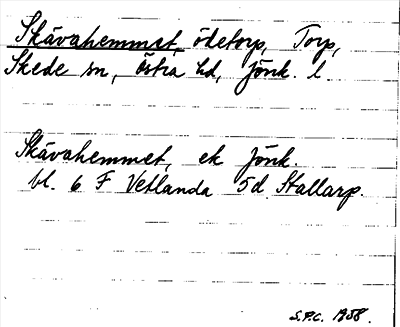 Skävahemmet, ödetorp, Torp,
Skede sn, östra hd, Jönk. l.
Skävahemmet, ek Jönk.
bl. 6 F Vetlanda 5d Stallarp.
S.P.C. 1958.